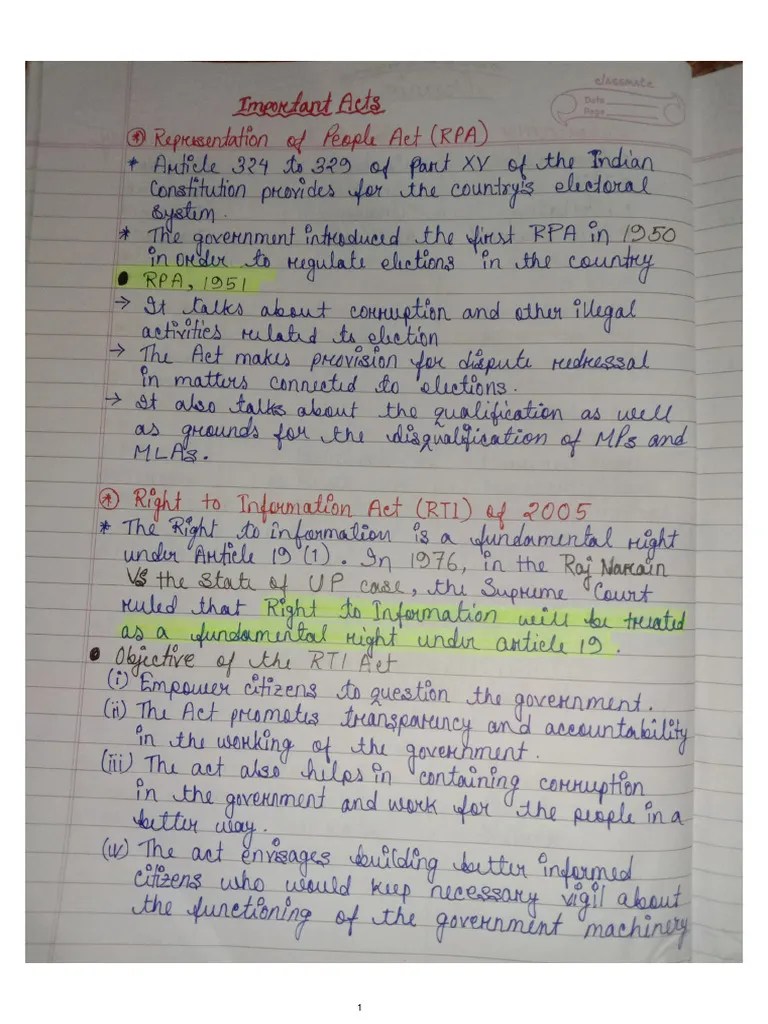 classmate
Date
Page
Important Acts
* Representation of People Act (RPA)
* Article 324 to 329 of Part XV of the Indian
Constitution provides for the country's electoral
system.
* The government introduced the first RPA in 1950
in order to regulate elections in the country
• RPA, 1951
→ It talks about corruption and other illegal
activities related to election
→ The Act makes provision for dispute redressal
in matters connected to elections.
→ It also talks about the qualification as well
as grounds for the disqualification of MPs and
MLAs.
* Right to Information Act (RTI) of 2005
* The Right to information is a fundamental right
under Article 19 (1). In 1976, in the Raj Narain
Vs the State of UP case, the Supreme Court
ruled that Right to Information will be treated
as a fundamental right under article 19.
• Objective of the RTI Act
(i) Empower citizens to question the government.
(ii) The Act promotes transparency and accountability
in the working of the government.
(iii) The act also helps in containing corruption
in the government and work for the people in a
better way.
(iv) The act envisages building better informed
citizens who would keep necessary vigil about
the functioning of the government machinery
1